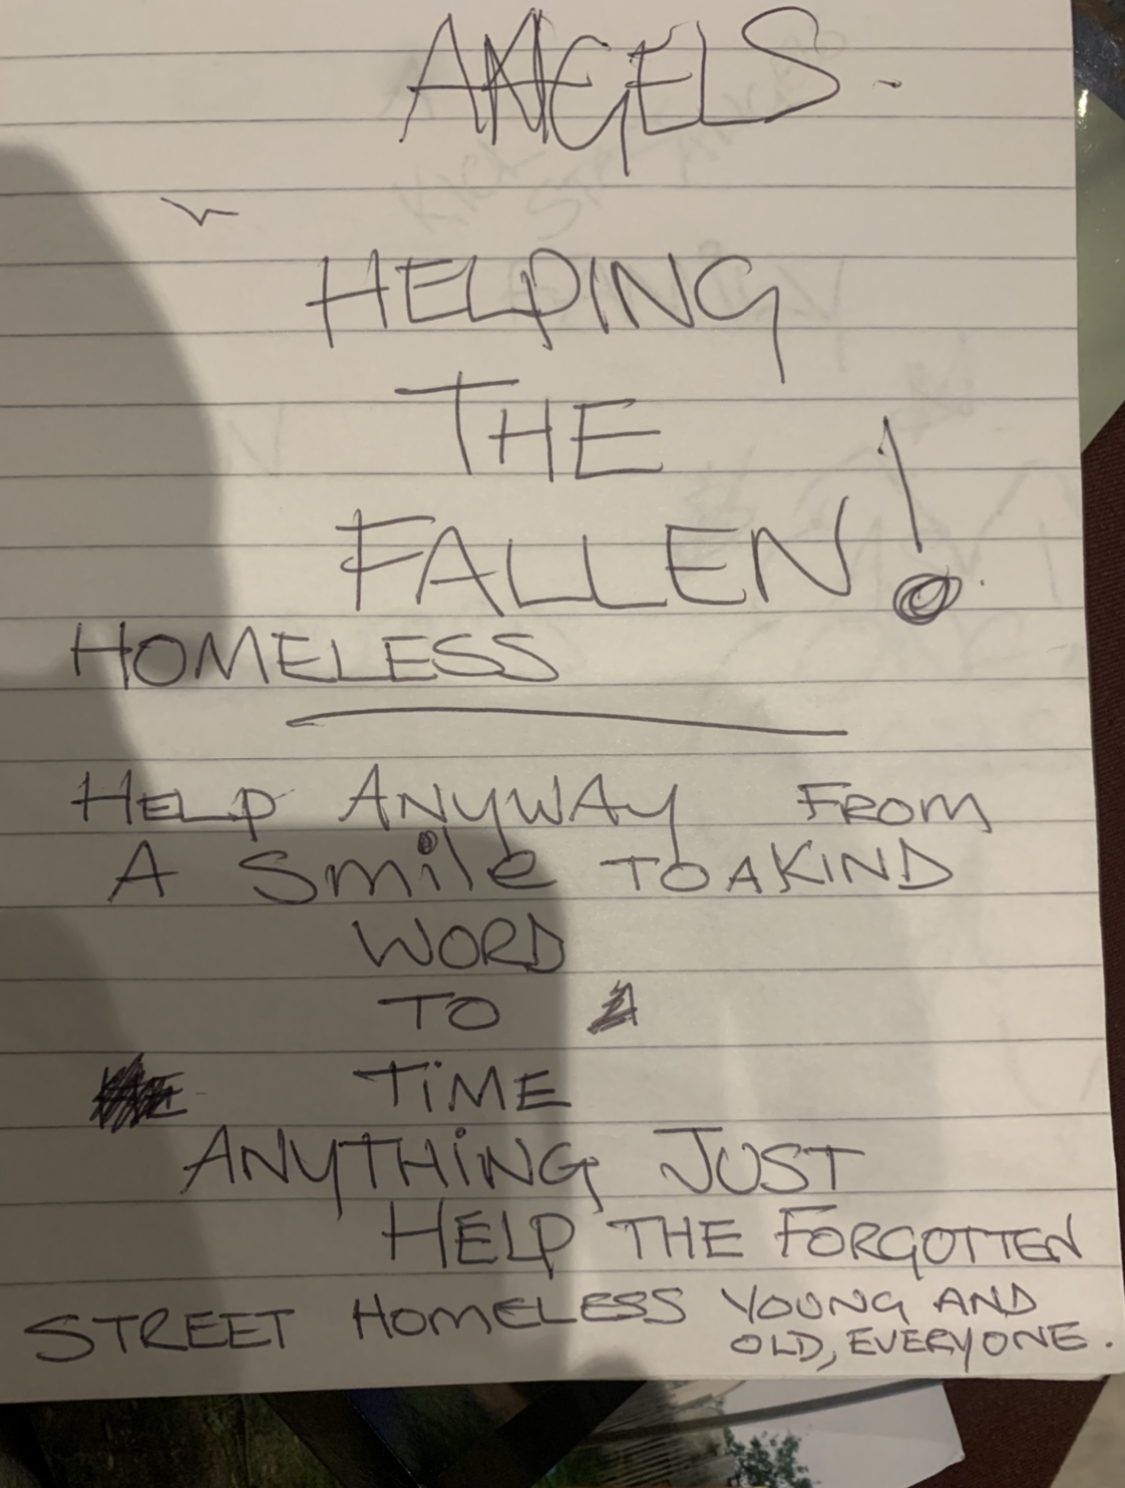 ANGELS.
HELPING
THE
FALLEN!
HOMELESS
HELP ANYWAY FROM
A Smile TO A KIND
WORD
TO
TiME
ANYTHiNG JUST
HELP THE FORGOTTEN
STREET HOMELESS YOUNG AND
OLD, EVERYONE.